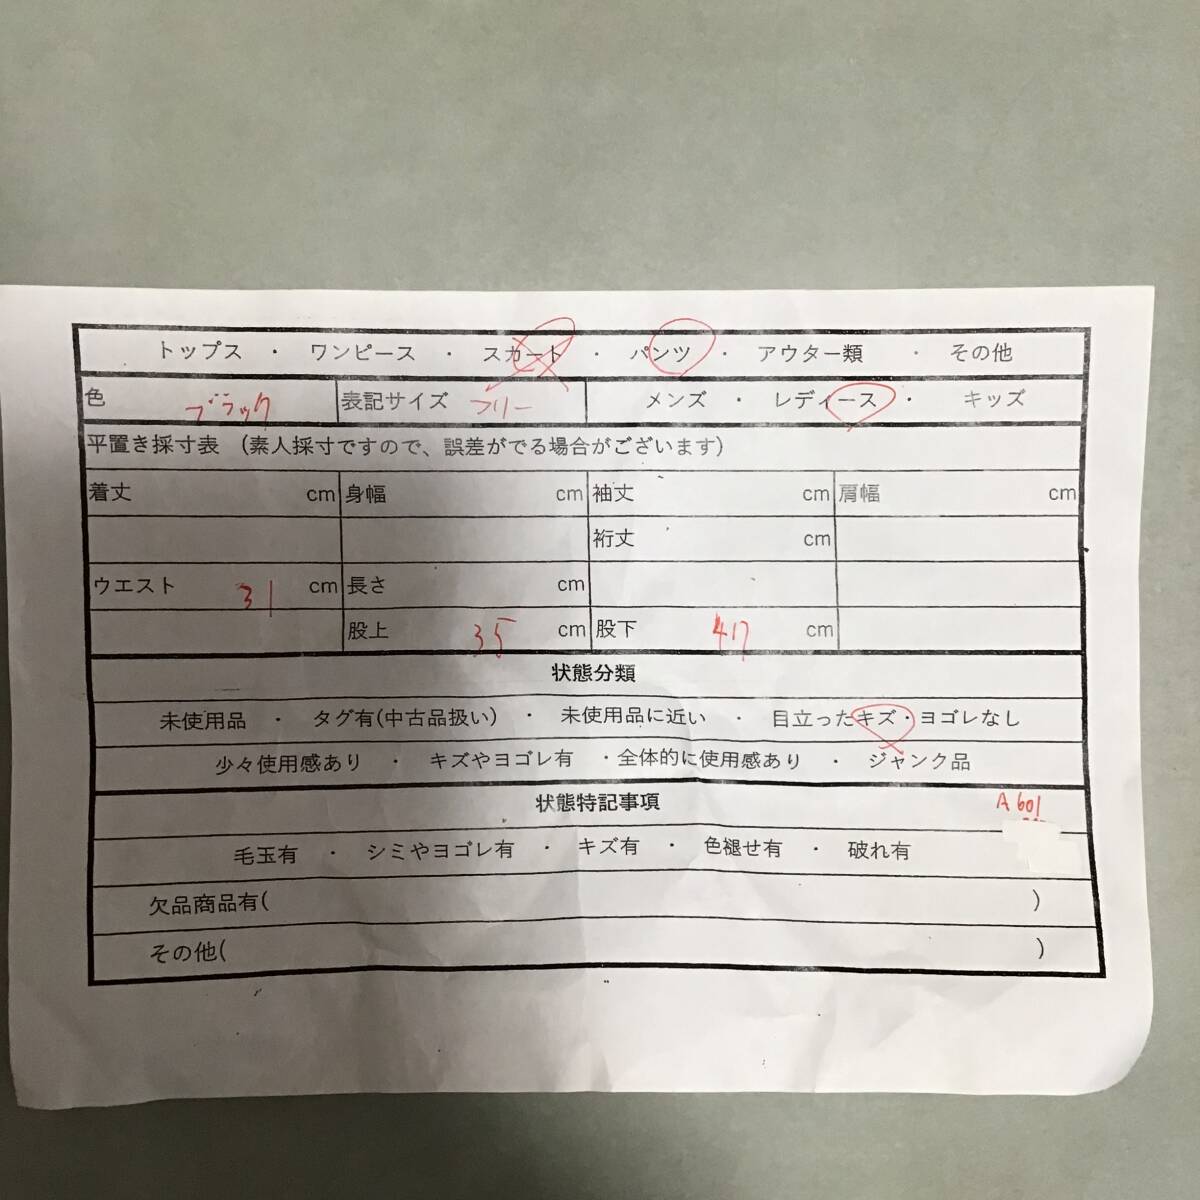 トップス ・ ワンピース ・ スカート ・ パンツ ・ アウター類 ・ その他
色 ブラック 表記サイズ フリー メンズ ・ レディース ・ キッズ
平置き採寸表 (素人採寸ですので、誤差がでる場合がございます)
着丈 cm 身幅 cm 袖丈 cm 肩幅 cm
裄丈 cm
ウエスト 31 cm 長さ cm
股上 35 cm 股下 cm
状態分類
未使用品 ・ タグ有(中古品扱い) ・ 未使用品に近い ・ 目立ったキズ・ヨゴレなし
少々使用感あり ・ キズやヨゴレ有 ・全体的に使用感あり ・ ジャンク品
状態特記事項 A601
毛玉有 ・ シミやヨゴレ有 ・ キズ有 ・ 色褪せ有 ・ 破れ有
欠品商品有( )
その他( )